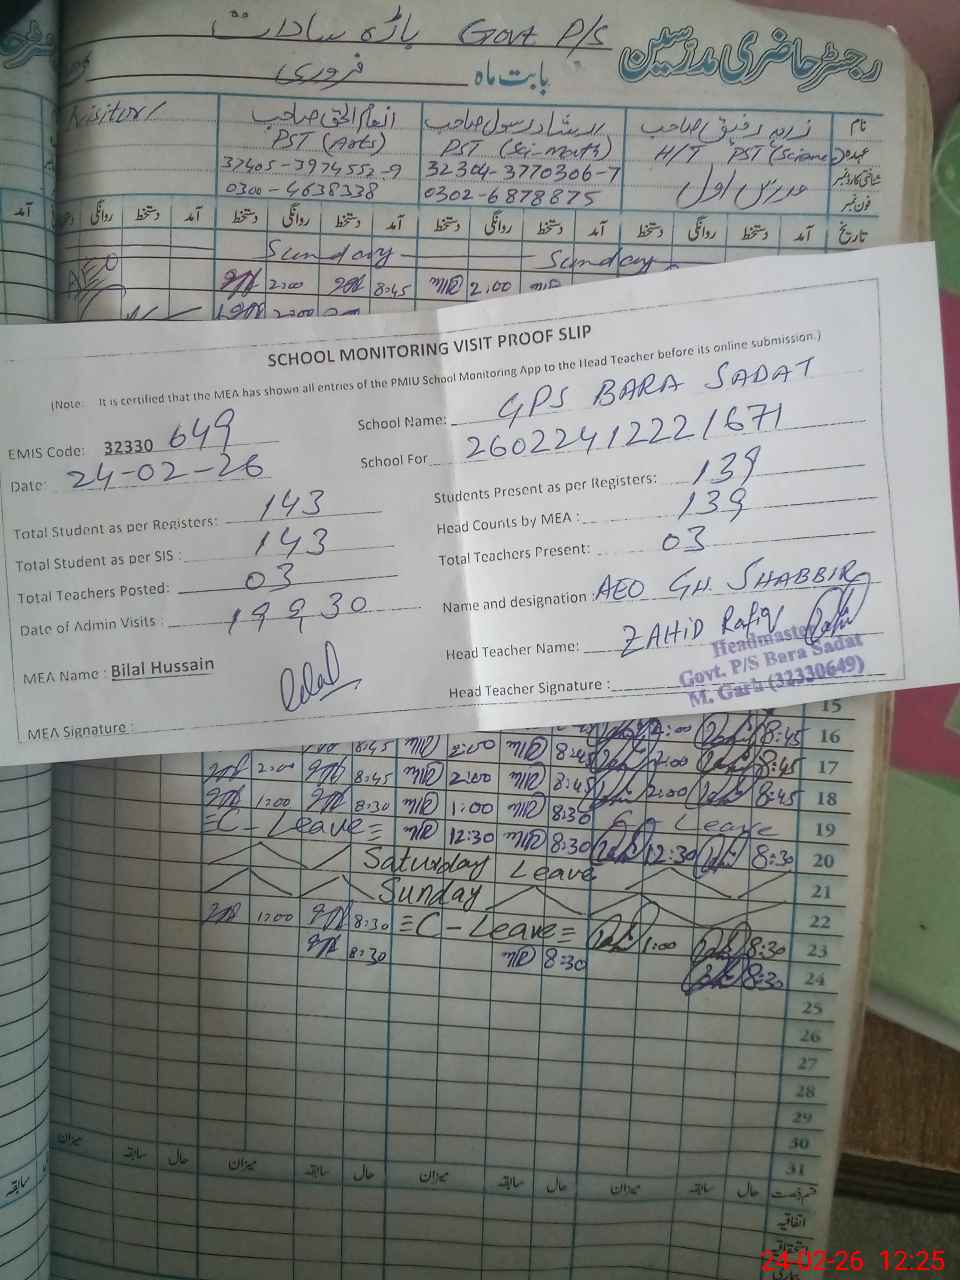 باڑہ سادات Govt P/S
رجسٹر حاضری مدرسین
بابت ماہ فروری
نام
زاہد رفیق صاحب
ارشاد رسول صاحب
انعام الحق صاحب
Visitor/
عہدہ
H/T PST (Science)
PST (Sci-Math)
PST (Arts)
شناختی کارڈ نمبر
مدرس اول
32304-3770306-7
فون نمبر
0302-6878875
0300-4638338
تاریخ آمد دستخط روانگی دستخط آمد دستخط روانگی دستخط آمد دستخط روانگی دستخط آمد
Sunday Sunday
AEO
2:00 8:45 2:00
2:00
SCHOOL MONITORING VISIT PROOF SLIP
(Note: It is certified that the MEA has shown all entries of the PMIU School Monitoring App to the Head Teacher before its online submission.)
EMIS Code: 32330 649
School Name: GPS BARA SADAT
Date: 24-02-26
School For 26022412221671
Total Student as per Registers: 143
Students Present as per Registers: 139
Total Student as per SIS : 143
Head Counts by MEA : 139
Total Teachers Posted: 03
Total Teachers Present: 03
Date of Admin Visits : 19,9,30
Name and designation : AEO GH. SHABBIR
MEA Name : Bilal Hussain
Head Teacher Name: ZAHID Rafiq
MEA Signature : Bilal
Head Teacher Signature :
Headmaster
Govt. P/S Bara Sadat
M. Garh (32330649)
15
8:45 2:00 8:45 2:00 8:45 16
2:00 8:45 2:00 8:45 2:00 8:45 17
1:00 8:30 1:00 8:30 2:00 8:45 18
C-Leave 12:30 8:30 Leave 19
12:30 8:30 20
Saturday Leave 21
Sunday 22
1:00 8:30 C-Leave 1:00 8:30 23
8:30 8:30 8:30 24
25
26
27
28
29
30
31
حال سابقہ میزان حال سابقہ میزان حال سابقہ میزان حال سابقہ میزان
اتفاقیہ
24-02-26 12:25